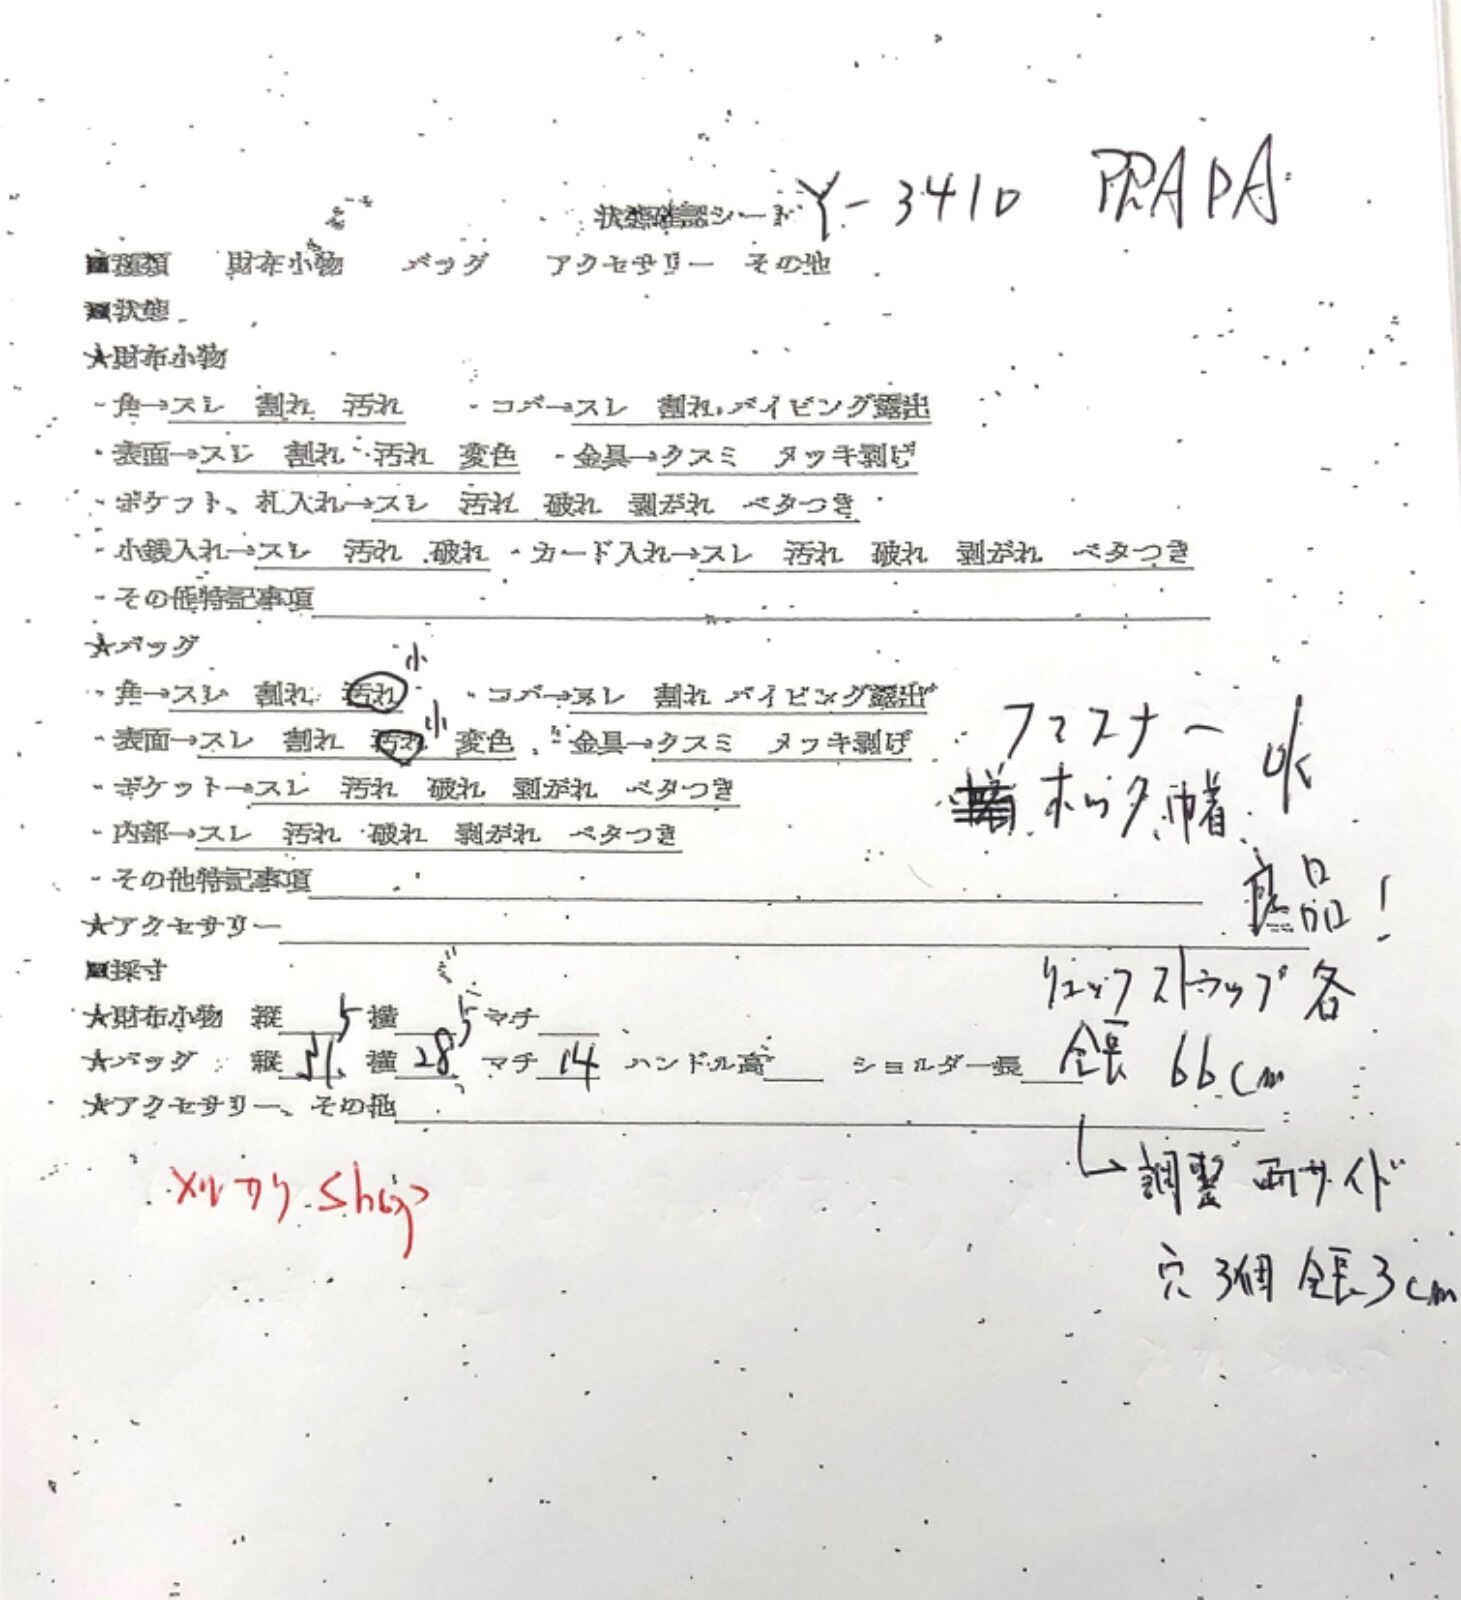 状態確認シート Y-3410 PRADA
■種類 財布小物 バッグ アクセサリー その他
■状態
★財布小物
・角→スレ 割れ 汚れ ・コバ→スレ 割れ パイピング露出
・表面→スレ 割れ 汚れ 変色 ・金具→クスミ メッキ剥げ
・ポケット、札入れ→スレ 汚れ 破れ 剥がれ ベタつき
・小銭入れ→スレ 汚れ 破れ ・カード入れ→スレ 汚れ 破れ 剥がれ ベタつき
・その他特記事項
★バッグ
小
・角→スレ 割れ 汚れ ・コバ→スレ 割れ パイピング露出
小
・表面→スレ 割れ 汚れ 変色 ・金具→クスミ メッキ剥げ
ファスナー
ok
・ポケット→スレ 汚れ 破れ 剥がれ ベタつき
ホック、巾着
・内部→スレ 汚れ 破れ 剥がれ ベタつき
・その他特記事項
良品!
★アクセサリー
■採寸
リュックストラップ 各
★財布小物 縦 横 マチ
5 5
★バッグ 縦31. 横28 マチ14 ハンドル高 ショルダー長
全長 66cm
★アクセサリー、その他
→調整 両サイド
メルカリ shop
穴3個 全長3cm